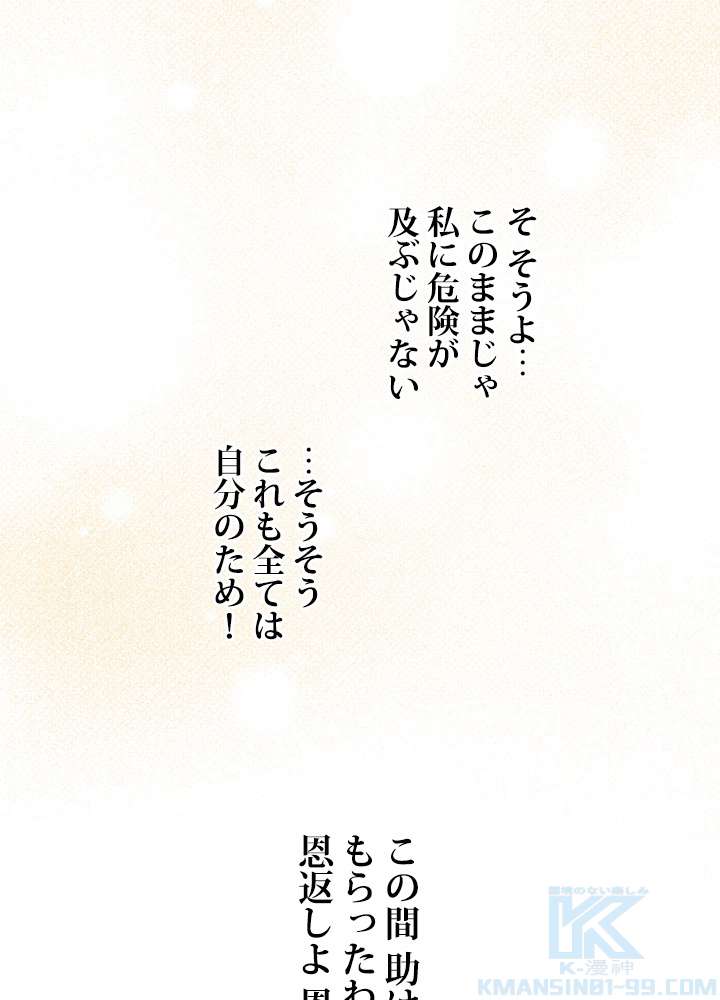 そ そうよ…
このままじゃ
私に危険が
及ぶじゃない
…そうそう
これも全ては
自分のため！
この間 助け
もらったわ
恩返しよ 恩
限界のない楽しみ
K-漫神
KMANSIN01-99.COM